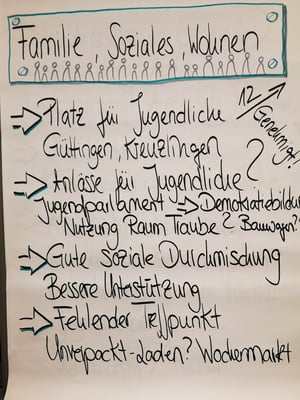 Familie, Soziales, Wohnen
12/ Genehmigt!
Platz für Jugendliche
Güttingen, Kreuzlingen
Anlässe für Jugendliche ?
Jugendparlament Demokratiebildu
Nutzung Raum Traube? Bauwagen?
Gute soziale Durchmischung
Bessere Unterstützung
Fehlender Treffpunkt
Unverpackt-Laden? Wochenmarkt